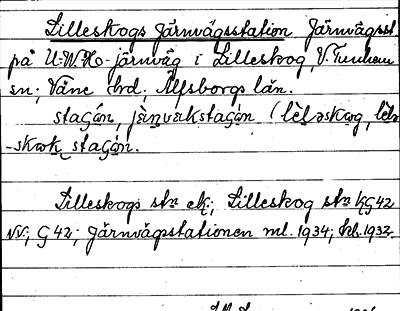 Lilleskogs Järnvägsstation Järnvägsst
på U-W-H-järnväg i Lilleskog, V. Tunhem
sn; Väne hrd. Älfsborgs län.
stagón, jä̀nvakstagón (lèləskog, lèlə
-skok stagón.
Lilleskogs stn ek; Lilleskog stn G42
NV; G 42; Järnvägsstationen ml. 1934; hd. 1932